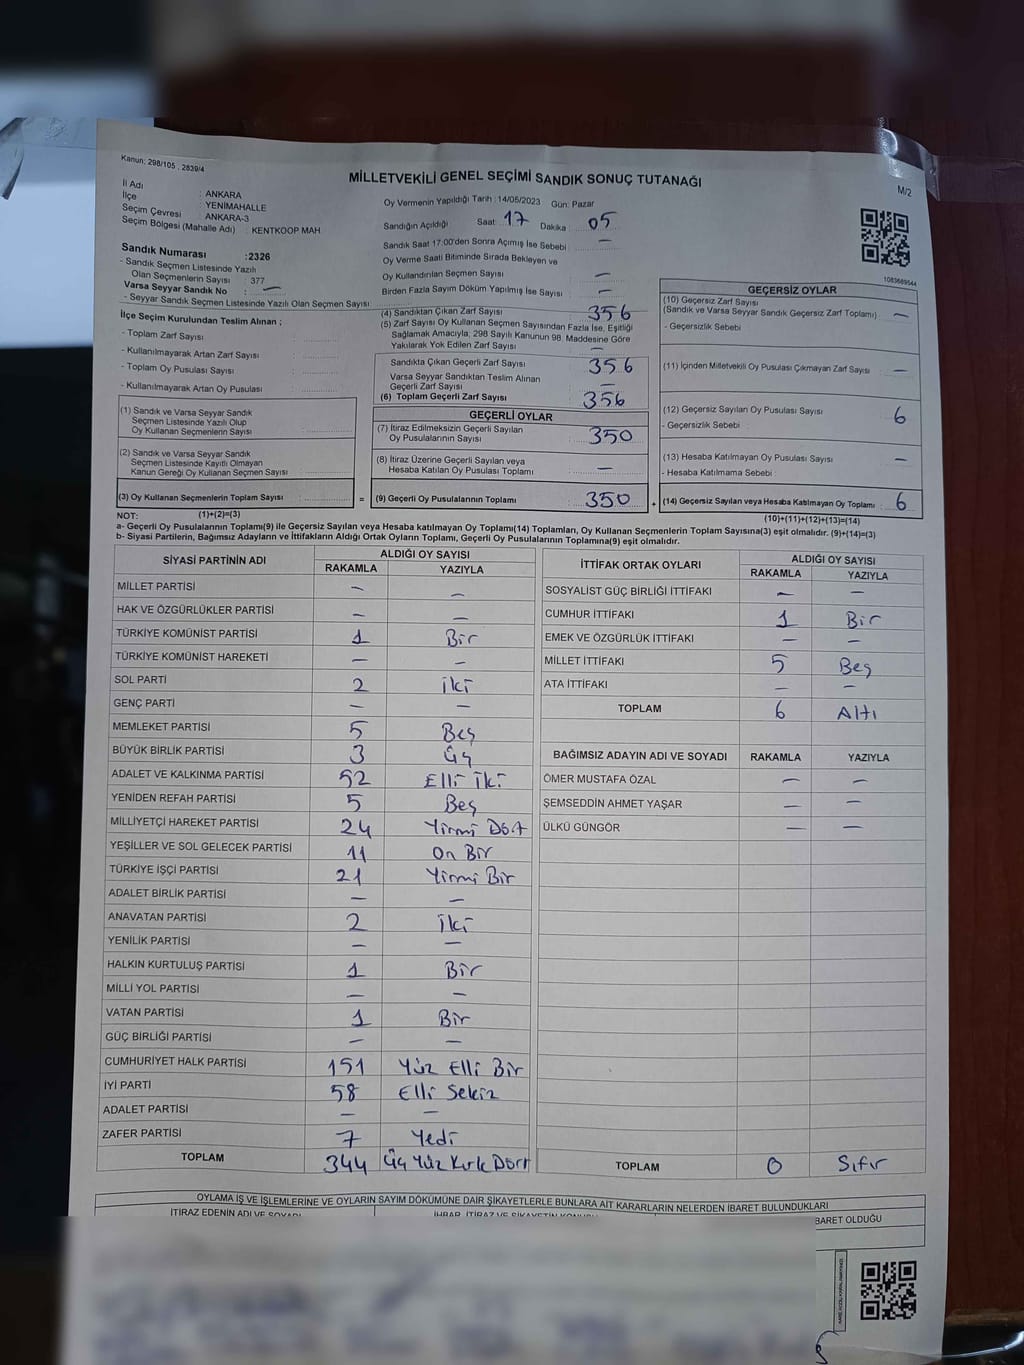 Kanun: 298/105 , 2839/4
MİLLETVEKİLİ GENEL SEÇİMİ SANDIK SONUÇ TUTANAĞI
M/2
İl Adı : ANKARA
İlçe : YENİMAHALLE
Seçim Çevresi : ANKARA-3
Seçim Bölgesi (Mahalle Adı) : KENTKOOP MAH
Sandık Numarası :2326
- Sandık Seçmen Listesinde Yazılı
Olan Seçmenlerin Sayısı : 377
Varsa Seyyar Sandık No : —
- Seyyar Sandık Seçmen Listesinde Yazılı Olan Seçmen Sayısı:
Oy Vermenin Yapıldığı Tarih : 14/05/2023 Gün: Pazar
Sandığın Açıldığı Saat: 17 Dakika : 05
Sandık Saat 17:00'den Sonra Açımış İse Sebebi : —
Oy Verme Saati Bitiminde Sırada Bekleyen ve
Oy Kullandırılan Seçmen Sayısı : —
Birden Fazla Sayım Döküm Yapılmış İse Sayısı : —
1083689544
İlçe Seçim Kurulundan Teslim Alınan ;
- Toplam Zarf Sayısı :
- Kullanılmayarak Artan Zarf Sayısı :
- Toplam Oy Pusulası Sayısı :
- Kullanılmayarak Artan Oy Pusulası :
(1) Sandık ve Varsa Seyyar Sandık
Seçmen Listesinde Yazılı Olup
Oy Kullanan Seçmenlerin Sayısı :
(2) Sandık ve Varsa Seyyar Sandık
Seçmen Listesinde Kayıtlı Olmayan
Kanun Gereği Oy Kullanan Seçmen Sayısı :
(3) Oy Kullanan Seçmenlerin Toplam Sayısı :
(1)+(2)=(3)
(4) Sandıktan Çıkan Zarf Sayısı : 356
(5) Zarf Sayısı Oy Kullanan Seçmen Sayısından Fazla İse, Eşitliği
Sağlamak Amacıyla, 298 Sayılı Kanunun 98. Maddesine Göre
Yakılarak Yok Edilen Zarf Sayısı : —
Sandıkta Çıkan Geçerli Zarf Sayısı : 356
Varsa Seyyar Sandıktan Teslim Alınan
Geçerli Zarf Sayısı : —
(6) Toplam Geçerli Zarf Sayısı : 356
GEÇERLİ OYLAR
(7) İtiraz Edilmeksizin Geçerli Sayılan
Oy Pusulalarının Sayısı : 350
(8) İtiraz Üzerine Geçerli Sayılan veya
Hesaba Katılan Oy Pusulası Toplamı : —
= (9) Geçerli Oy Pusulalarının Toplamı : 350 +
GEÇERSİZ OYLAR
(10) Geçersiz Zarf Sayısı
(Sandık ve Varsa Seyyar Sandık Geçersiz Zarf Toplamı) : —
- Geçersizlik Sebebi :
(11) İçinden Milletvekili Oy Pusulası Çıkmayan Zarf Sayısı : —
(12) Geçersiz Sayılan Oy Pusulası Sayısı : 6
- Geçersizlik Sebebi :
(13) Hesaba Katılmayan Oy Pusulası Sayısı : —
- Hesaba Katılmama Sebebi :
(14) Geçersiz Sayılan veya Hesaba Katılmayan Oy Toplamı : 6
(10)+(11)+(12)+(13)=(14)
NOT:
a- Geçerli Oy Pusulalarının Toplamı(9) ile Geçersiz Sayılan veya Hesaba katılmayan Oy Toplamı(14) Toplamları, Oy Kullanan Seçmenlerin Toplam Sayısına(3) eşit olmalıdır. (9)+(14)=(3)
b- Siyasi Partilerin, Bağımsız Adayların ve İttifakların Aldığı Ortak Oyların Toplamı, Geçerli Oy Pusulalarının Toplamına(9) eşit olmalıdır.
SİYASİ PARTİNİN ADI ALDIĞI OY SAYISI
RAKAMLA YAZIYLA
MİLLET PARTİSİ — —
HAK VE ÖZGÜRLÜKLER PARTİSİ — —
TÜRKİYE KOMÜNİST PARTİSİ 1 Bir
TÜRKİYE KOMÜNİST HAREKETİ — —
SOL PARTİ 2 İki
GENÇ PARTİ — —
MEMLEKET PARTİSİ 5 Beş
BÜYÜK BİRLİK PARTİSİ 3 Üç
ADALET VE KALKINMA PARTİSİ 52 Elli İki
YENİDEN REFAH PARTİSİ 5 Beş
MİLLİYETÇİ HAREKET PARTİSİ 24 Yirmi Dört
YEŞİLLER VE SOL GELECEK PARTİSİ 11 On Bir
TÜRKİYE İŞÇİ PARTİSİ 21 Yirmi Bir
ADALET BİRLİK PARTİSİ — —
ANAVATAN PARTİSİ 2 İki
YENİLİK PARTİSİ — —
HALKIN KURTULUŞ PARTİSİ 1 Bir
MİLLİ YOL PARTİSİ — —
VATAN PARTİSİ 1 Bir
GÜÇ BİRLİĞİ PARTİSİ — —
CUMHURİYET HALK PARTİSİ 151 Yüz Elli Bir
İYİ PARTİ 58 Elli Sekiz
ADALET PARTİSİ — —
ZAFER PARTİSİ 7 Yedi
TOPLAM 344 Üç Yüz Kırk Dört
İTTİFAK ORTAK OYLARI ALDIĞI OY SAYISI
RAKAMLA YAZIYLA
SOSYALİST GÜÇ BİRLİĞİ İTTİFAKI — —
CUMHUR İTTİFAKI 1 Bir
EMEK VE ÖZGÜRLÜK İTTİFAKI — —
MİLLET İTTİFAKI 5 Beş
ATA İTTİFAKI — —
TOPLAM 6 Altı
BAĞIMSIZ ADAYIN ADI VE SOYADI RAKAMLA YAZIYLA
ÖMER MUSTAFA ÖZAL — —
ŞEMSEDDİN AHMET YAŞAR — —
ÜLKÜ GÜNGÖR — —
TOPLAM 0 Sıfır
OYLAMA İŞ VE İŞLEMLERİNE VE OYLARIN SAYIM DÖKÜMÜNE DAİR ŞİKAYETLERLE BUNLARA AİT KARARLARIN NELERDEN İBARET BULUNDUKLARI
İTİRAZ EDENİN ADI VE SOYADI İHBAR, İTİRAZ VE ŞİKAYETİN KONUSU BARET OLDUĞU